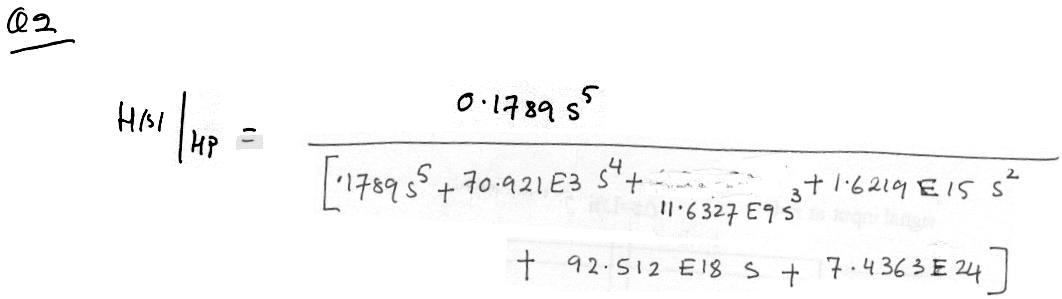 Q2
H(s)|HP = 0.1789 s^5
[.1789 s^5 + 70.921 E3 s^4 + 11.6327 E9 s^3 + 1.6219 E 15 s^2
+ 92.512 E18 s + 7.4363 E 24]